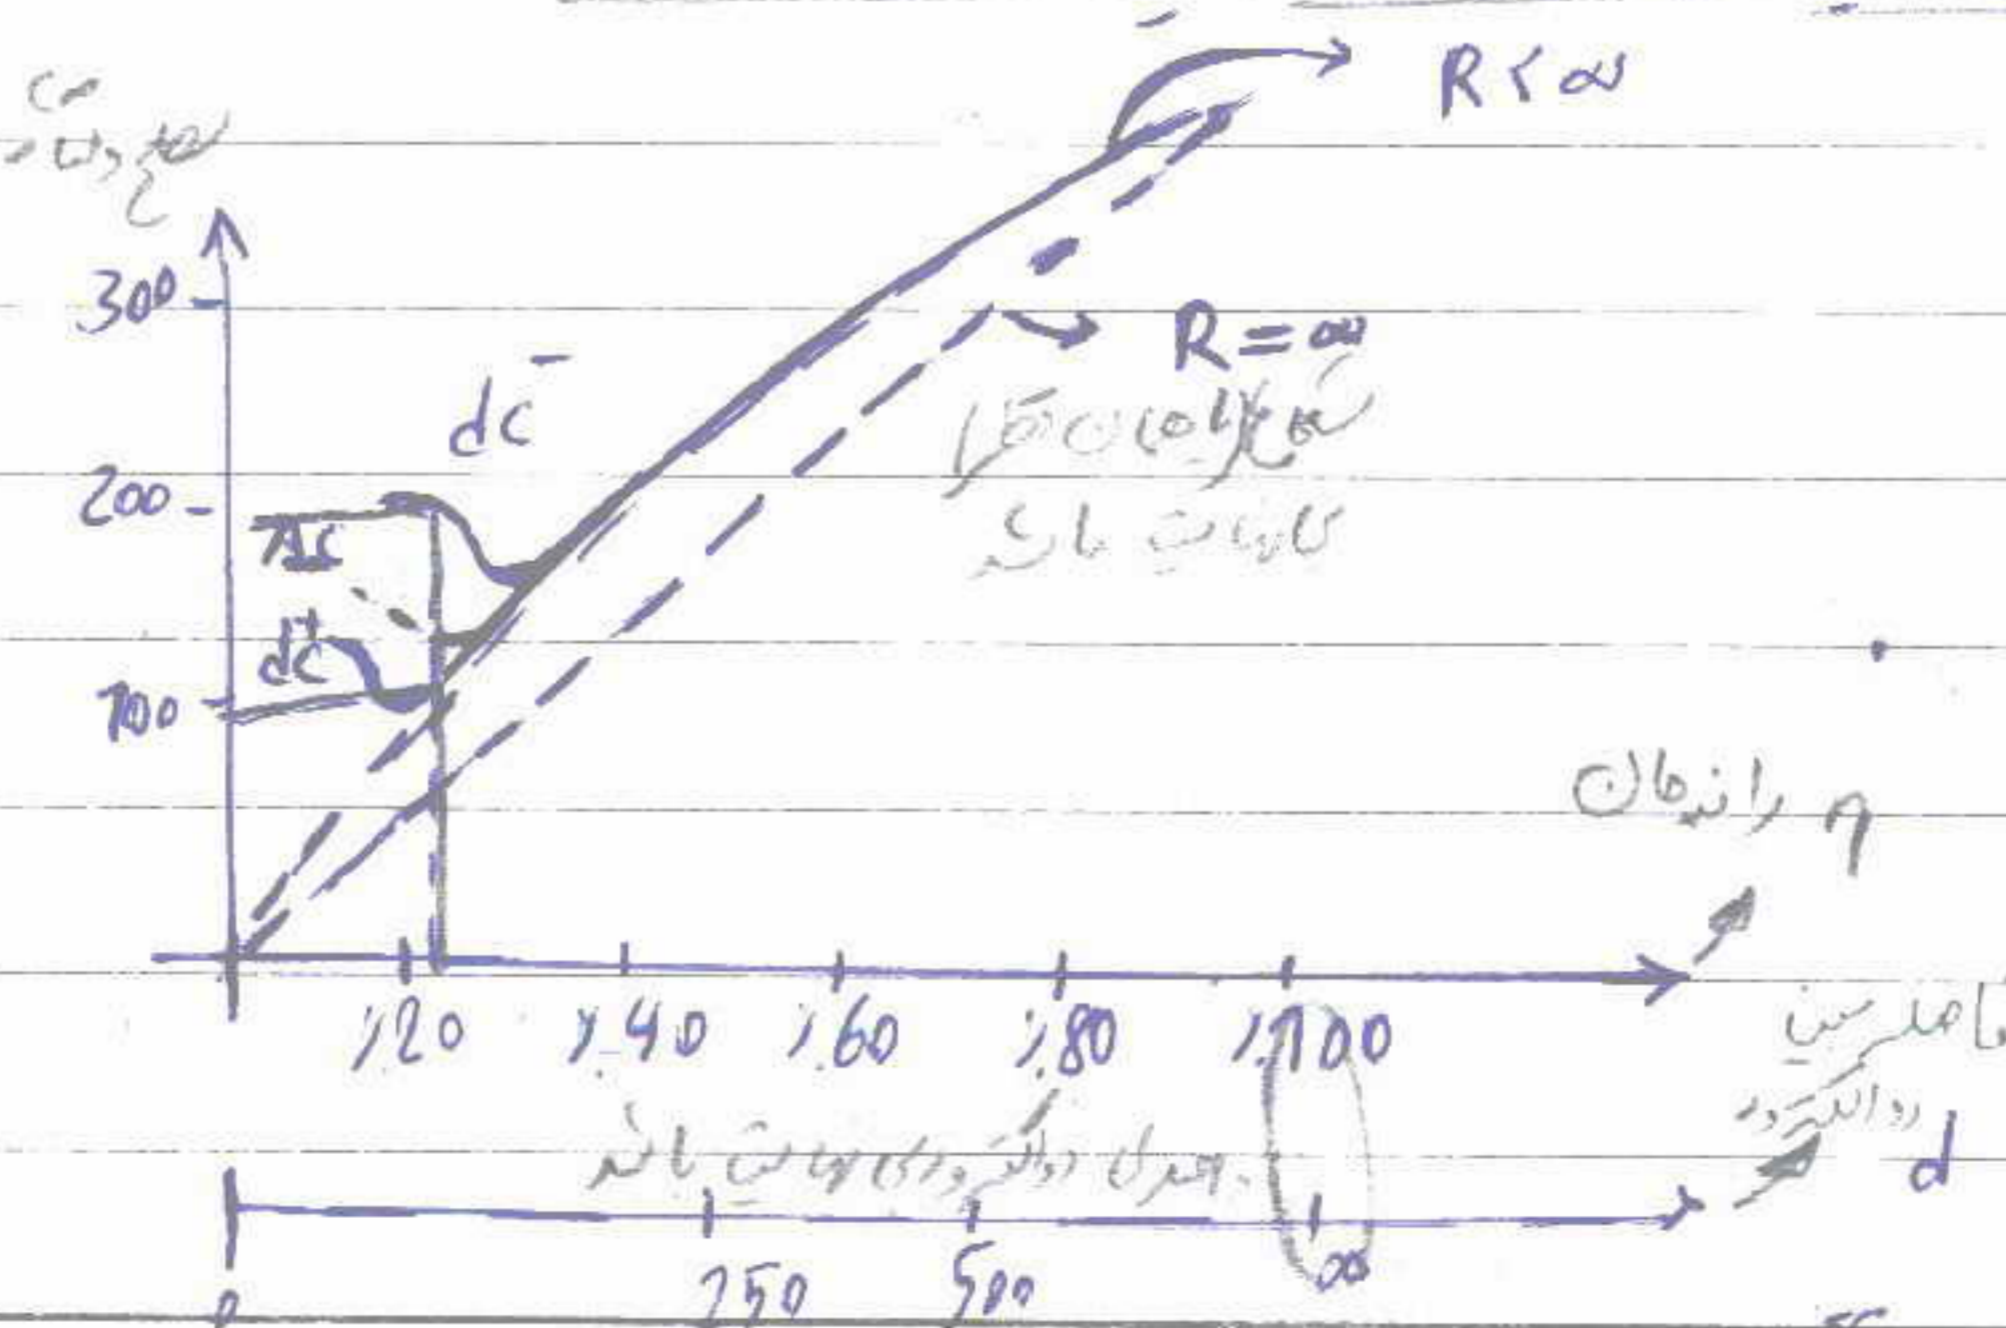 R < ∞
300
R = ∞
dc⁻
بی‌نهایت باشد
200
AC
dc⁺
100
η راندمان
%20 %40 %60 %80 %100
فاصله بین
دو الکترود d
باشد
0 250 500 ∞